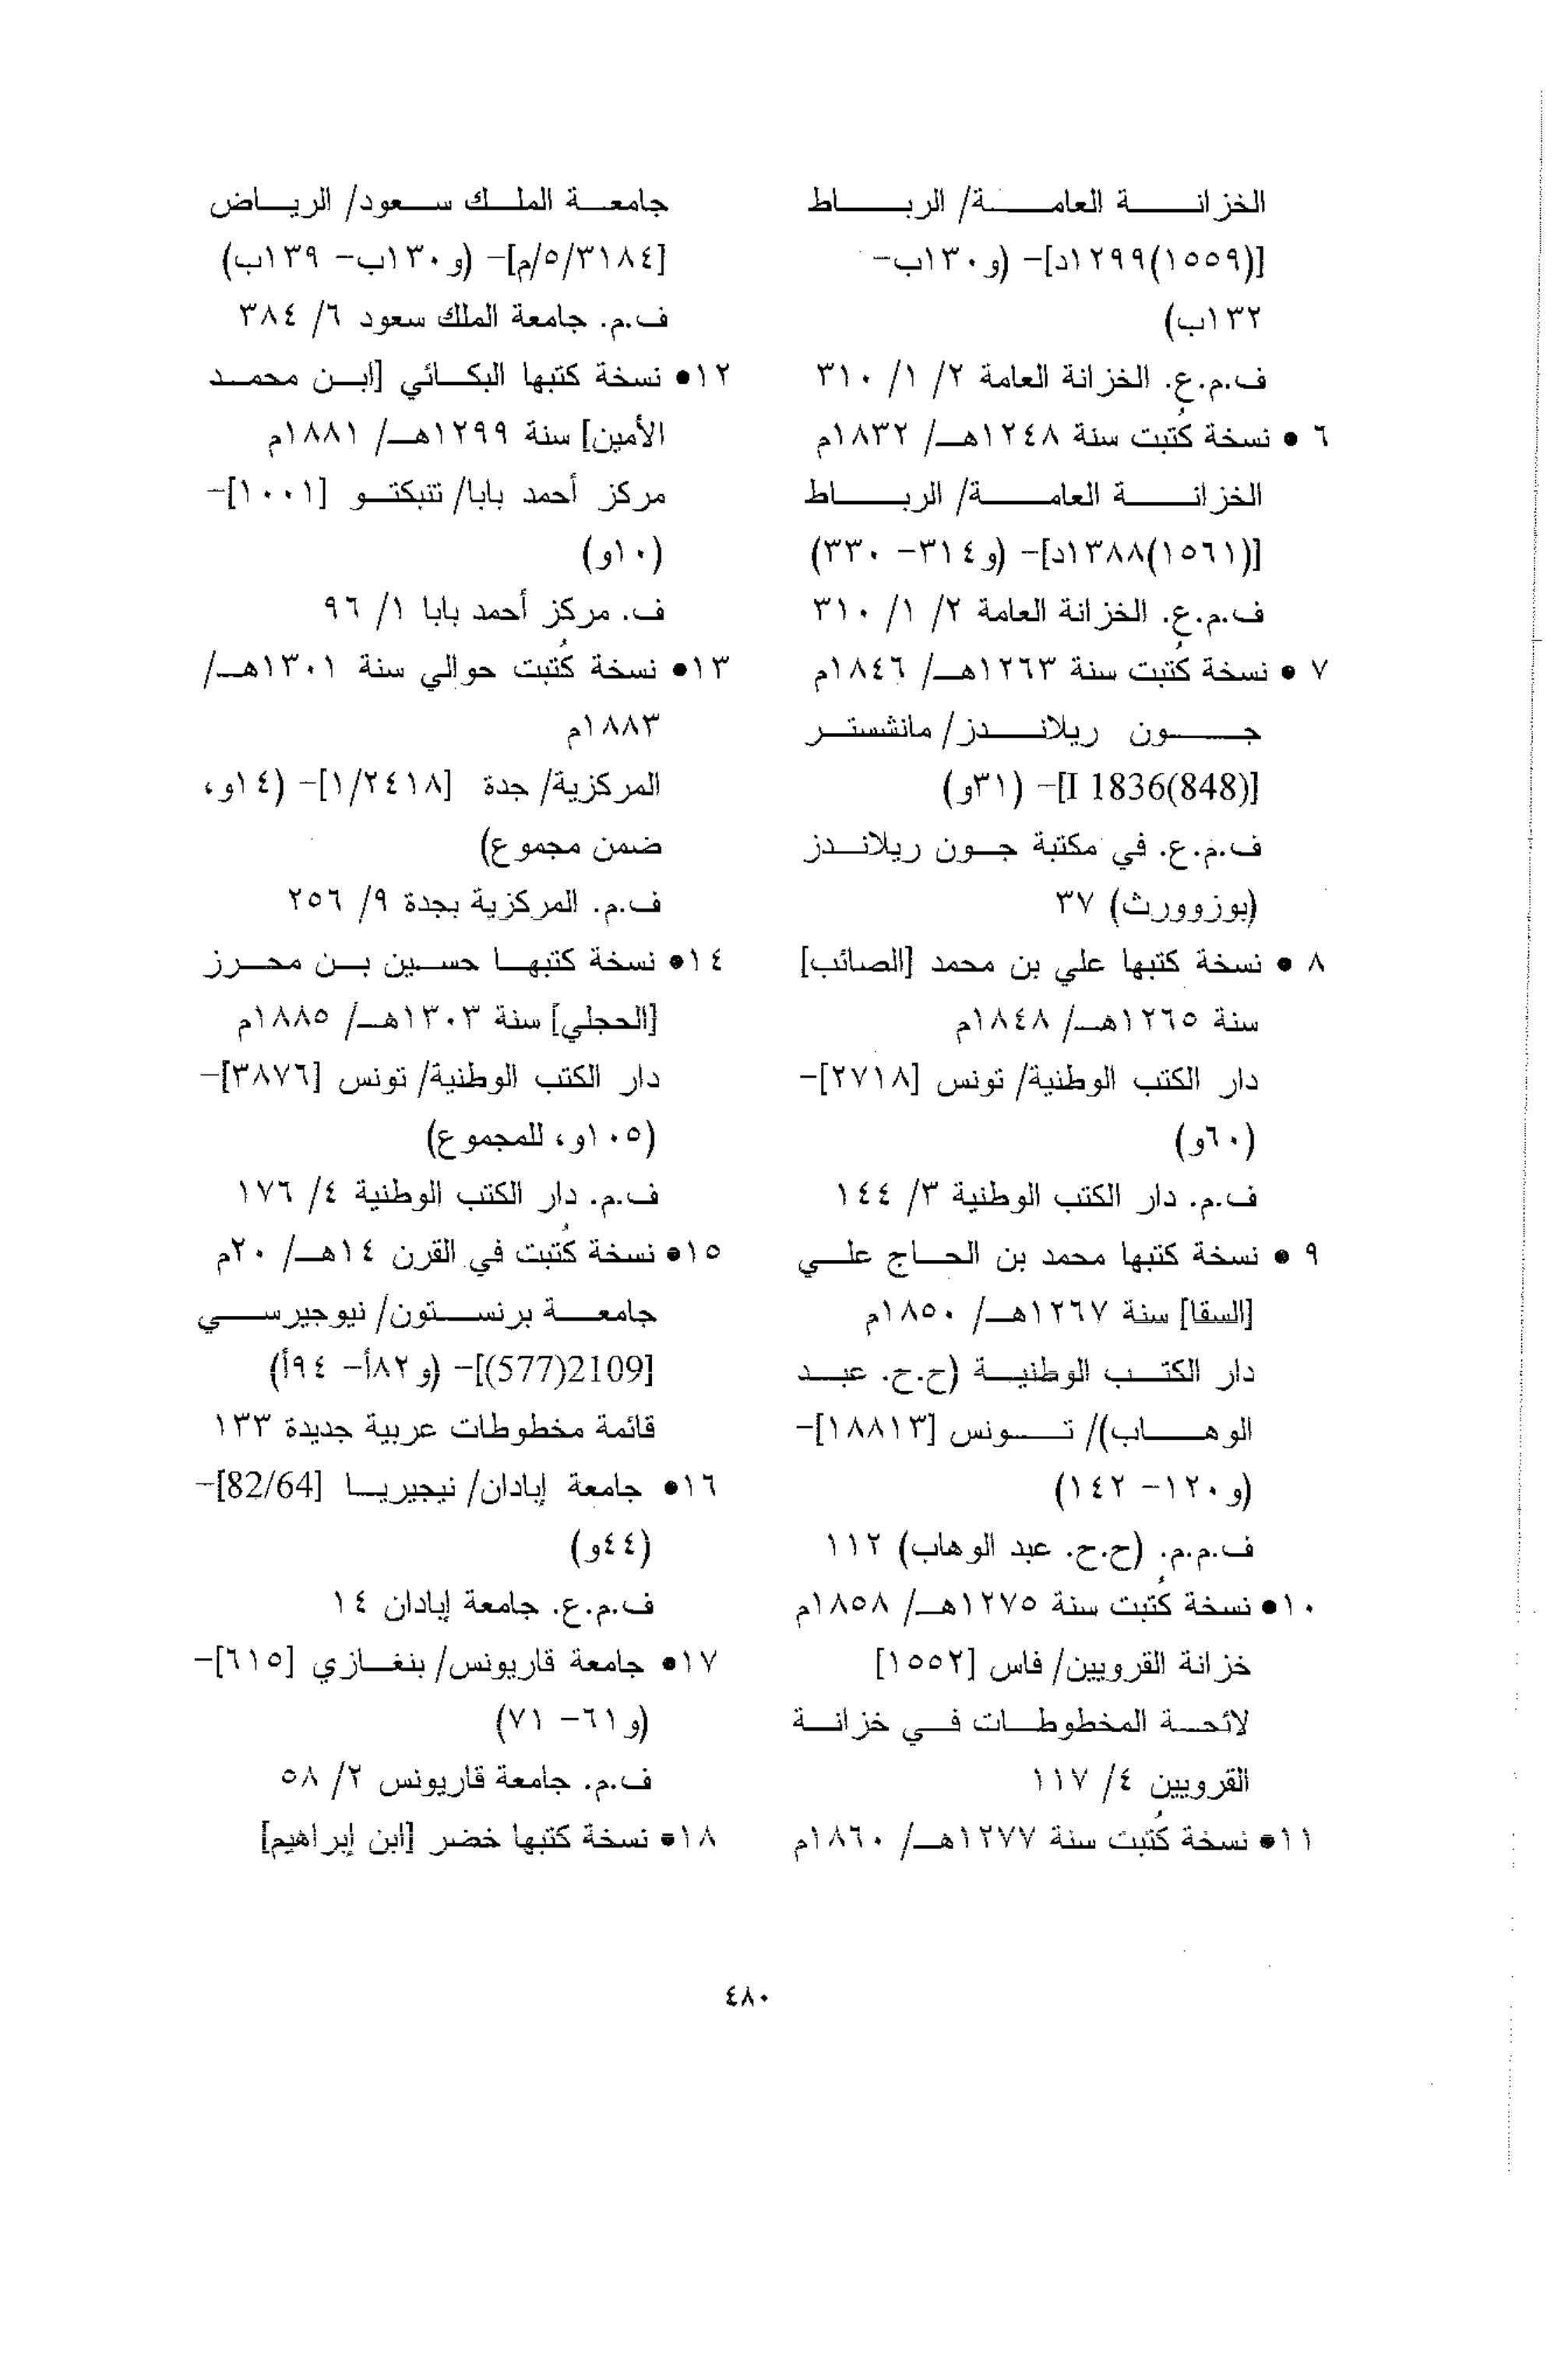 الخزانة العامة/ الرباط
[(١٥٥٩)١٢٩٩د]- (و١٣٠ب-
١٣٢ب)
ف.م.ع. الخزانة العامة ٢/ ١/ ٣١٠
٦ • نسخة كُتبت سنة ١٢٤٨هـ/ ١٨٣٢م
الخزانة العامة/ الرباط
[(١٥٦١)١٣٨٨د]- (و٣١٤- ٣٣٠)
ف.م.ع. الخزانة العامة ٢/ ١/ ٣١٠
٧ • نسخة كُتبت سنة ١٢٦٣هـ/ ١٨٤٦م
جون ريلاندز/ مانشستر
[I 1836(848)]- (٣١و)
ف.م.ع. في مكتبة جون ريلاندز
(بوزوورث) ٣٧
٨ • نسخة كتبها علي بن محمد [الصائب]
سنة ١٢٦٥هـ/ ١٨٤٨م
دار الكتب الوطنية/ تونس [٢٧١٨]-
(٦٠و)
ف.م. دار الكتب الوطنية ٣/ ١٤٤
٩ • نسخة كتبها محمد بن الحاج علي
[السقا] سنة ١٢٦٧هـ/ ١٨٥٠م
دار الكتب الوطنية (ح.ح. عبد
الوهاب)/ تونس [١٨٨١٣]-
(و١٢٠- ١٤٢)
ف.م.م. (ح.ح. عبد الوهاب) ١١٢
١٠• نسخة كُتبت سنة ١٢٧٥هـ/ ١٨٥٨م
خزانة القرويين/ فاس [١٥٥٢]
لائحة المخطوطات في خزانة
القرويين ٤/ ١١٧
١١• نسخة كُتبت سنة ١٢٧٧هـ/ ١٨٦٠م
جامعة الملك سعود/ الرياض
[٣١٨٤/٥/م]- (و١٣٠ب- ١٣٩ب)
ف.م. جامعة الملك سعود ٦/ ٣٨٤
١٢• نسخة كتبها البكائي [ابن محمد
الأمين] سنة ١٢٩٩هـ/ ١٨٨١م
مركز أحمد بابا/ تنبكتو [١٠٠١]-
(١٠و)
ف. مركز أحمد بابا ١/ ٩٦
١٣• نسخة كُتبت حوالي سنة ١٣٠١هـ/
١٨٨٣م
المركزية/ جدة [١/٢٤١٨]- (١٤و،
ضمن مجموع)
ف.م. المركزية بجدة ٩/ ٢٥٦
١٤• نسخة كتبها حسين بن محرز
[الحجلي] سنة ١٣٠٣هـ/ ١٨٨٥م
دار الكتب الوطنية/ تونس [٣٨٧٦]-
(١٠٥و، للمجموع)
ف.م. دار الكتب الوطنية ٤/ ١٧٦
١٥• نسخة كُتبت في القرن ١٤هـ/ ٢٠م
جامعة برنستون/ نيوجيرسي
[2109(577)]- (و٨٢أ- ٩٤أ)
قائمة مخطوطات عربية جديدة ١٣٣
١٦• جامعة إبادان/ نيجيريا [82/64]-
(٤٤و)
ف.م.ع. جامعة إبادان ١٤
١٧• جامعة قاريونس/ بنغازي [٦١٥]-
(و٦١- ٧١)
ف.م. جامعة قاريونس ٢/ ٥٨
١٨• نسخة كتبها خضر [ابن إبراهيم]
٤٨٠